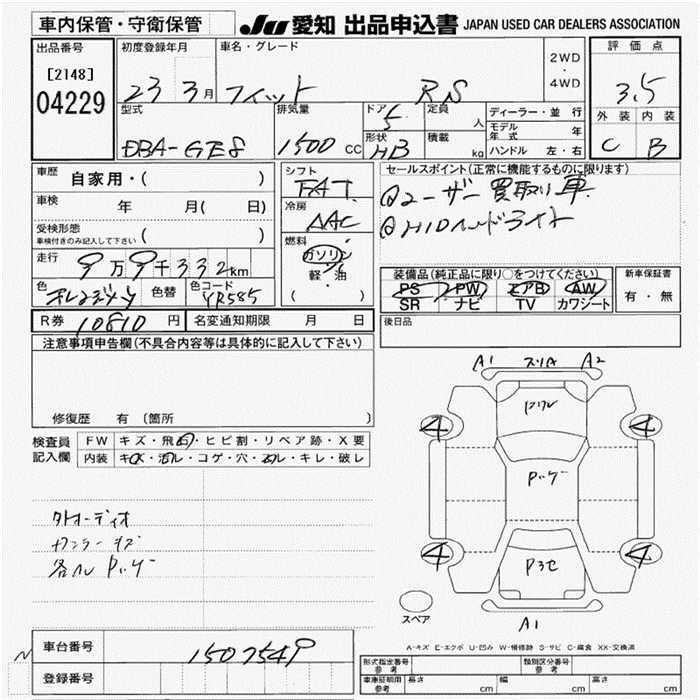 車内保管・守衛保管
JU 愛知 出品申込書 JAPAN USED CAR DEALERS ASSOCIATION
出品番号
[2148]
04229
初度登録年月
23 3月
車名・グレード
フィット RS
2WD
・
4WD
評価点
3.5
外装 内装
C B
型式
DBA-GE8
排気量
1500 CC
ドア
5
形状
HB
定員
人
積載
kg
ディーラー・並行
モデル年式 年
ハンドル 左・右
車歴 自家用・( )
車検 年 月( 日)
受検形態
車検付きのみ記入して下さい ( )
走行 9万9千332km
色 オレンジ
色替
色コード YR585
R券 10810 円
名変通知期限 月 日
シフト
FAT
冷房
AAC
燃料
ガソリン
軽・油
( )
セールスポイント(正常に機能するものに限ります)
ユーザー買取り車
HIDヘッドライト
装備品(純正品に限り○をつけてください)
PS PW エアB AW
SR ナビ TV カワシート
新車保証書
有・無
後日品
注意事項申告欄(不具合内容等は具体的に記入して下さい)
修復歴 有 (箇所 )
検査員
記入欄
FW キズ・飛石・ヒビ割・リペア跡・X要
内装 キズ・汚れ・コゲ・穴・ヌレ・キレ・破レ
外オーディオ
カンラーキズ
A1 スリA A2
4 4
Pハゲ
4 4
P3セ
A1
スペア
A-キズ E-エクボ U-凹み W-補修跡 S-サビ C-腐食 XX-交換済
車台番号 1507549
登録番号
型式指定番号
参考
類別区分番号
参考
車庫証明用
参考
長さ cm 幅 cm 高さ cm